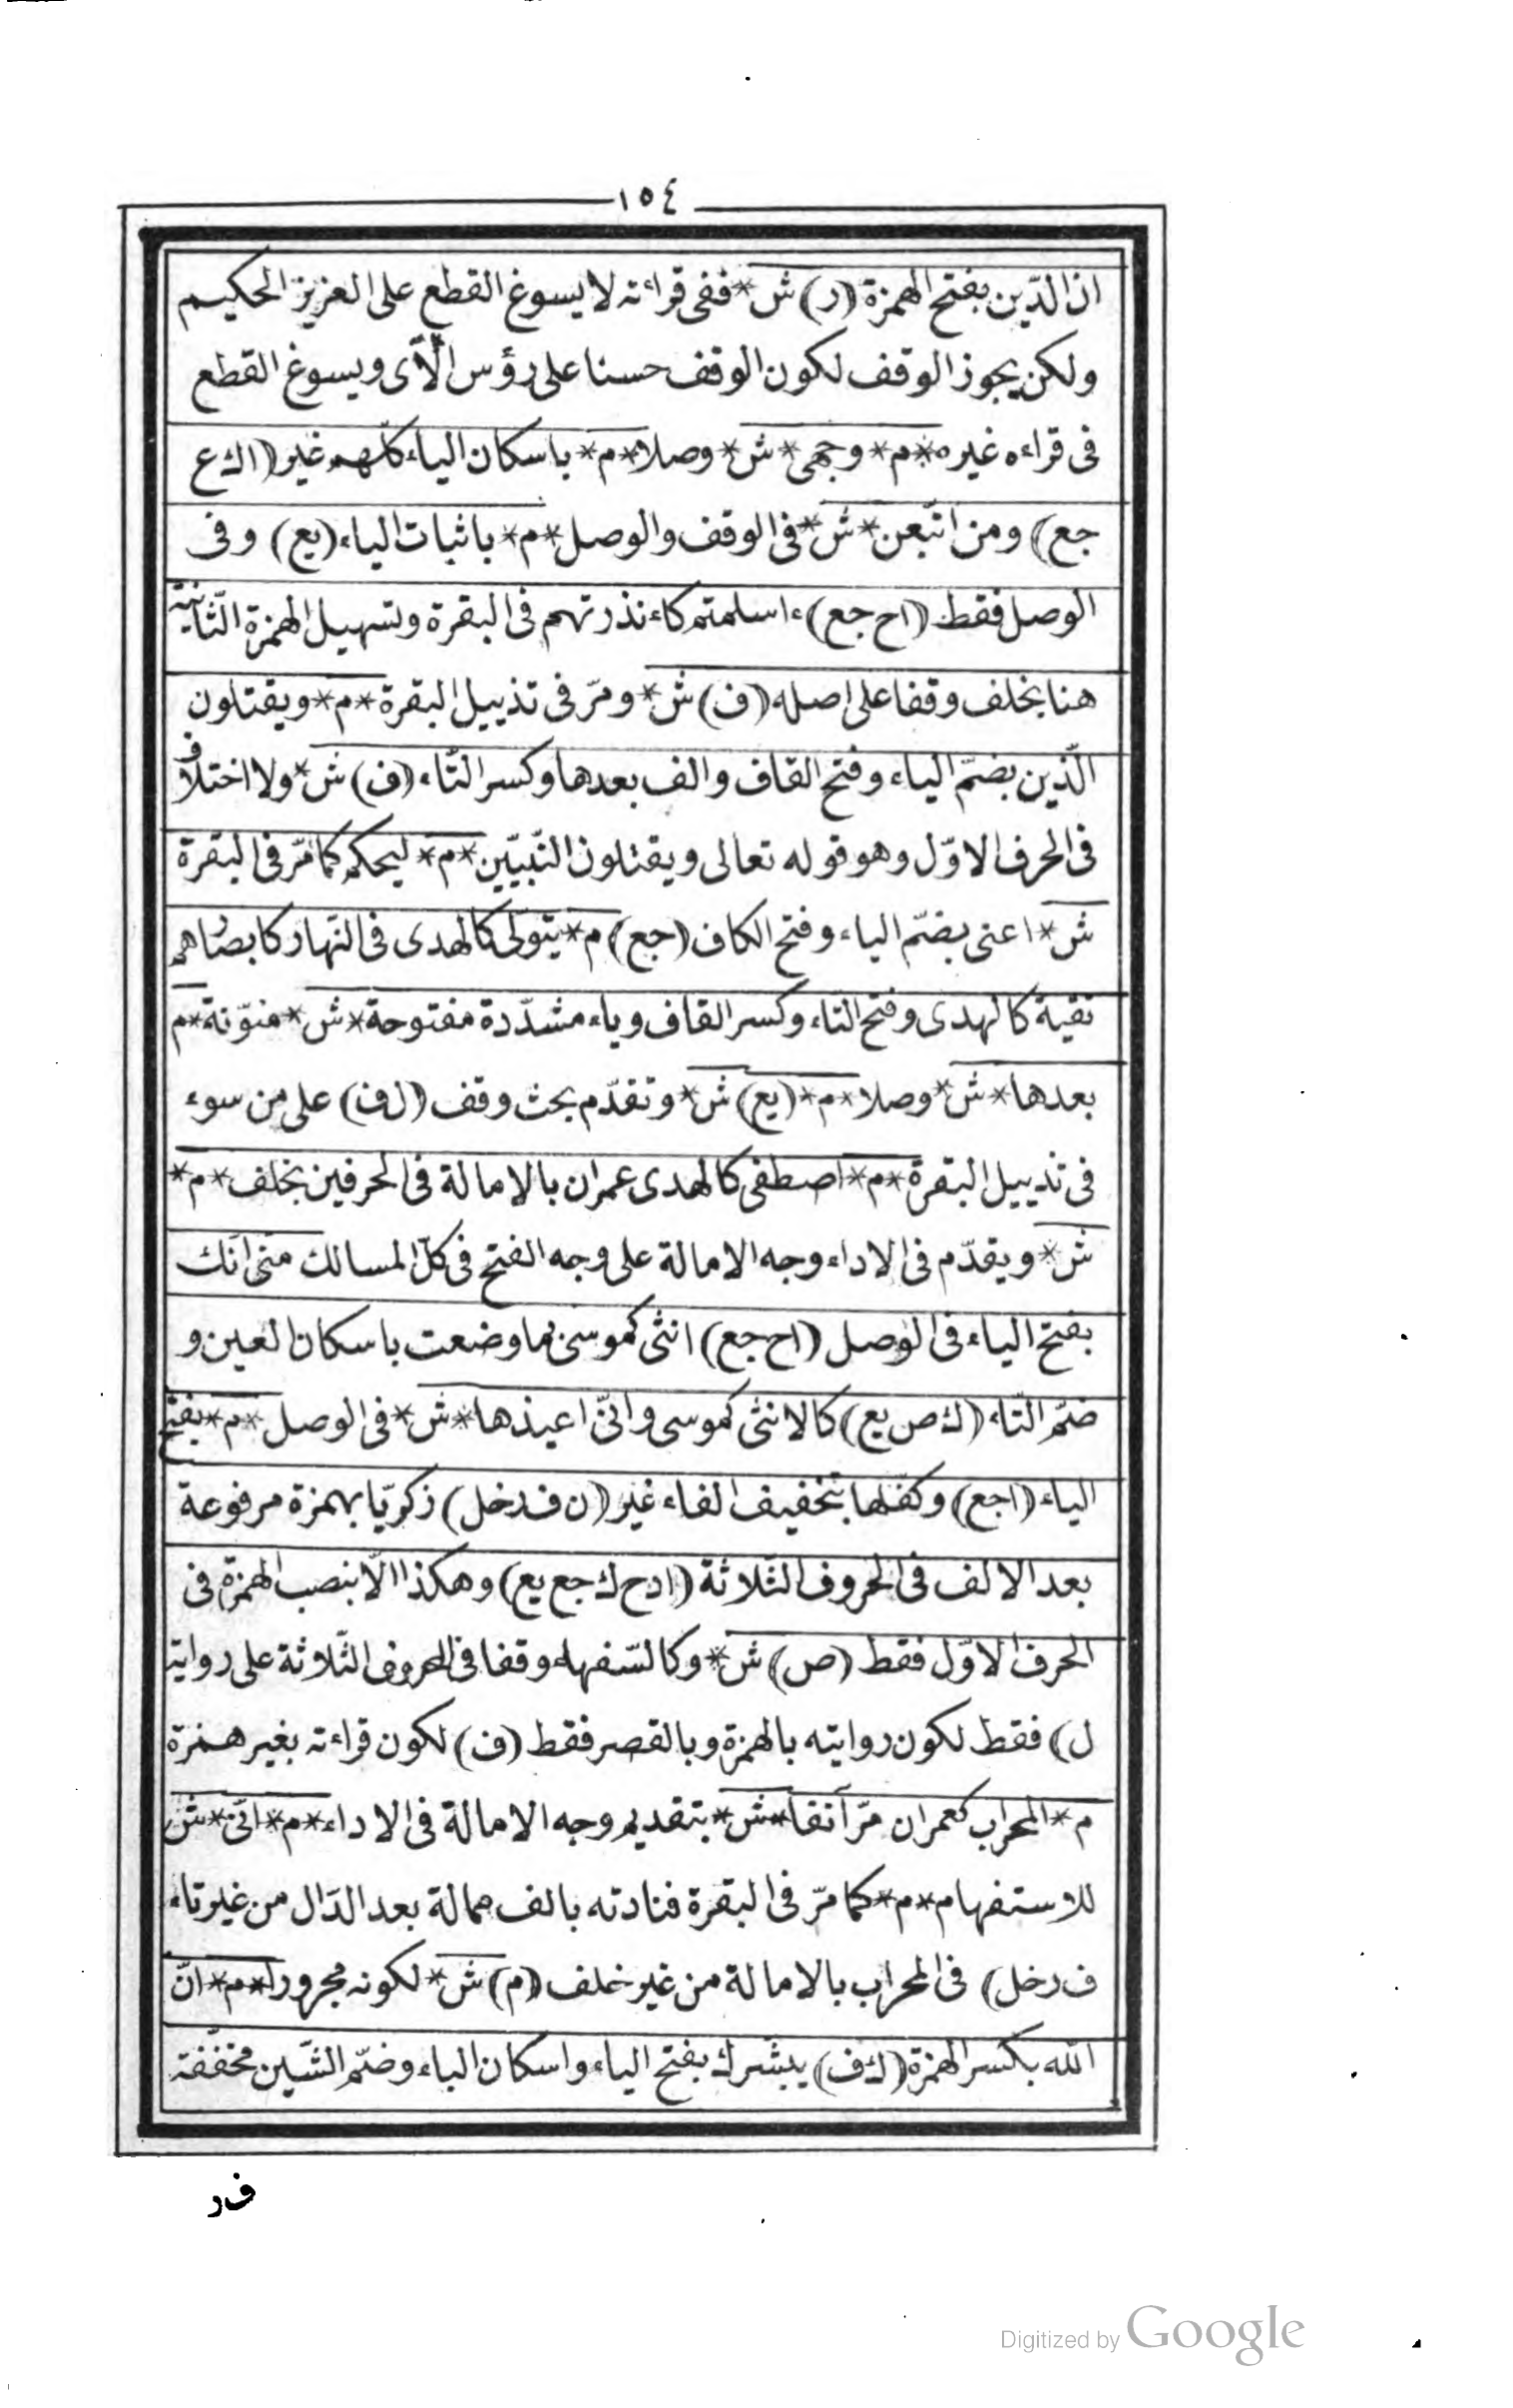 ١٥٤
ان الدّين بفتح الهمزة (ر) ش* ففى قراءته لا يسوغ القطع على العزيز الحكيم
ولكن يجوز الوقف لكون الوقف حسنا على رؤس الآى ويسوغ القطع
فى قراءه غيره *م* وجهى *ش* وصلا *م* باسكان الياء كلهم غير (اك ع
جع) ومن اتّبعن *ش* فى الوقف والوصل *م* باثبات الياء (يع) وفى
الوصل فقط (اح جع) ءاسلمتم كاءنذرتهم فى البقرة وتسهيل الهمزة الثّانية
هنا بخلف وقفا على اصله (ف) ش* ومرّ فى تذييل البقرة *م* ويقتلون
الّذين بضمّ الياء وفتح القاف والف بعدها وكسر التّاء (ف) ش* ولا اختلاف
فى الحرف الاوّل وهو قوله تعالى ويقتلون النّبيّين *م* ليحكم كما مرّ فى البقرة
ش* اعنى بضمّ الياء وفتح الكاف (جع) م* يتولّى كالهدى فى النّهار كابصارهم
تقية كالهدى وفتح التاء وكسر القاف وياء مشدّدة مفتوحة *ش* منوّنة *م
بعدها *ش* وصلا *م* (يع) ش* وتقدّم بحث وقف (ل ف) على من سوء
فى تذييل البقرة *م* اصطفى كالهدى عمران بالامالة فى الحرفين بخلف *م*
ش* ويقدّم فى الاداء وجه الامالة على وجه الفتح فى كلّ المسالك منّى انّك
بفتح الياء فى الوصل (اح جع) انثى كموسى بما وضعت باسكان العين و
ضمّ التّاء (ك ص يع) كالانثى كموسى وانّى اعيذها *ش* فى الوصل *م* بفتح
الياء (ا جع) وكفلها بتخفيف الفاء غير (ن ف ر خل) زكريّا بهمزة مرفوعة
بعد الالف فى الحروف الثّلاثة (ا د ح ك جع يع) وهكذا الّا بنصب الهمزة فى
الحرف الاوّل فقط (ص) ش* وكالسّفهاء وقفا فى الحروف الثّلاثة على رواية
ل) فقط لكون روايته بالهمزة وبالقصر فقط (ف) لكون قراءته بغير همزة
م* المحراب كعمران مرّ آنفا *ش* بتقديم وجه الامالة فى الاداء *م* انّى *ش
للاستفهام *م* كما مرّ فى البقرة فنادته بالف ممالة بعد الدّال من غير تاء
ف ر خل) فى المحراب بالامالة من غير خلف (م) ش* لكونه مجرورا *م* انّ
الله بكسر الهمزة (ك ف) يبشّرك بفتح الياء واسكان الباء وضمّ الشّين مخفّفة
ف ر
Digitized by Google